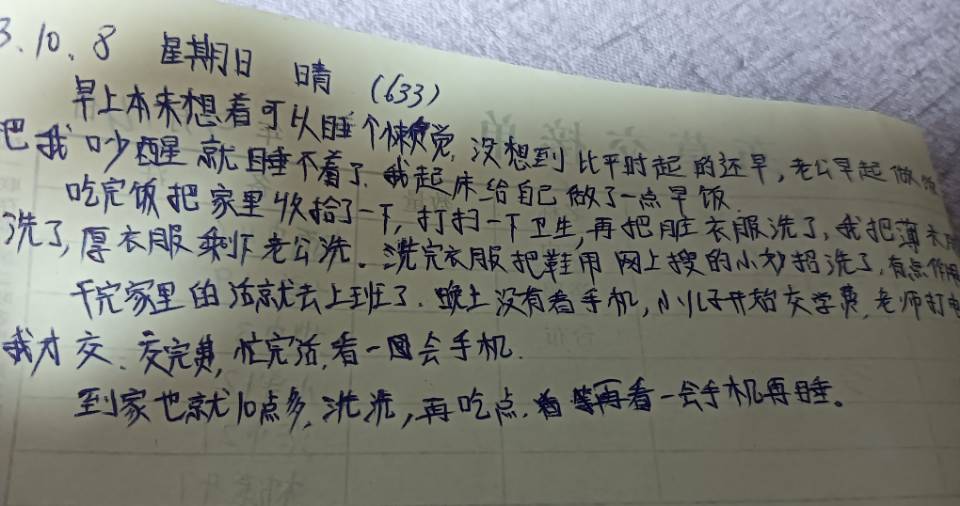 3.10.8 星期日 晴 (633)
早上本来想着可以睡个懒觉,没想到比平时起的还早,老公早起做饭
把我吵醒就睡不着了.我起床给自己做了一点早饭.
吃完饭把家里收拾了一下,打扫一下卫生,再把脏衣服洗了,我把薄衣服
洗了,厚衣服剩下老公洗.洗完衣服把鞋用网上搜的小妙招洗了,有点作用
干完家里的活就去上班了.晚上没有看手机,小儿子开始交学费,老师打电
我才交.交完费,忙完活,看一会手机.
到家也就10点多,洗洗,再吃点.再看一会手机再睡。